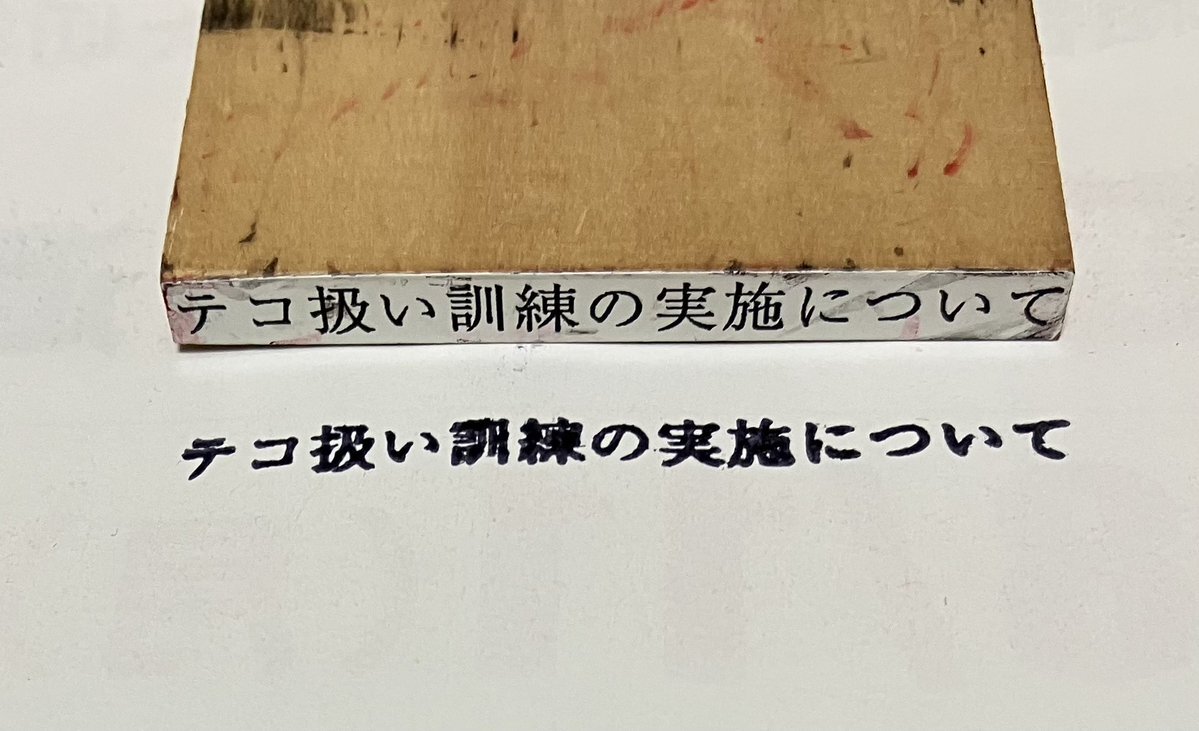 テコ扱い訓練の実施について
テコ扱い訓練の実施について